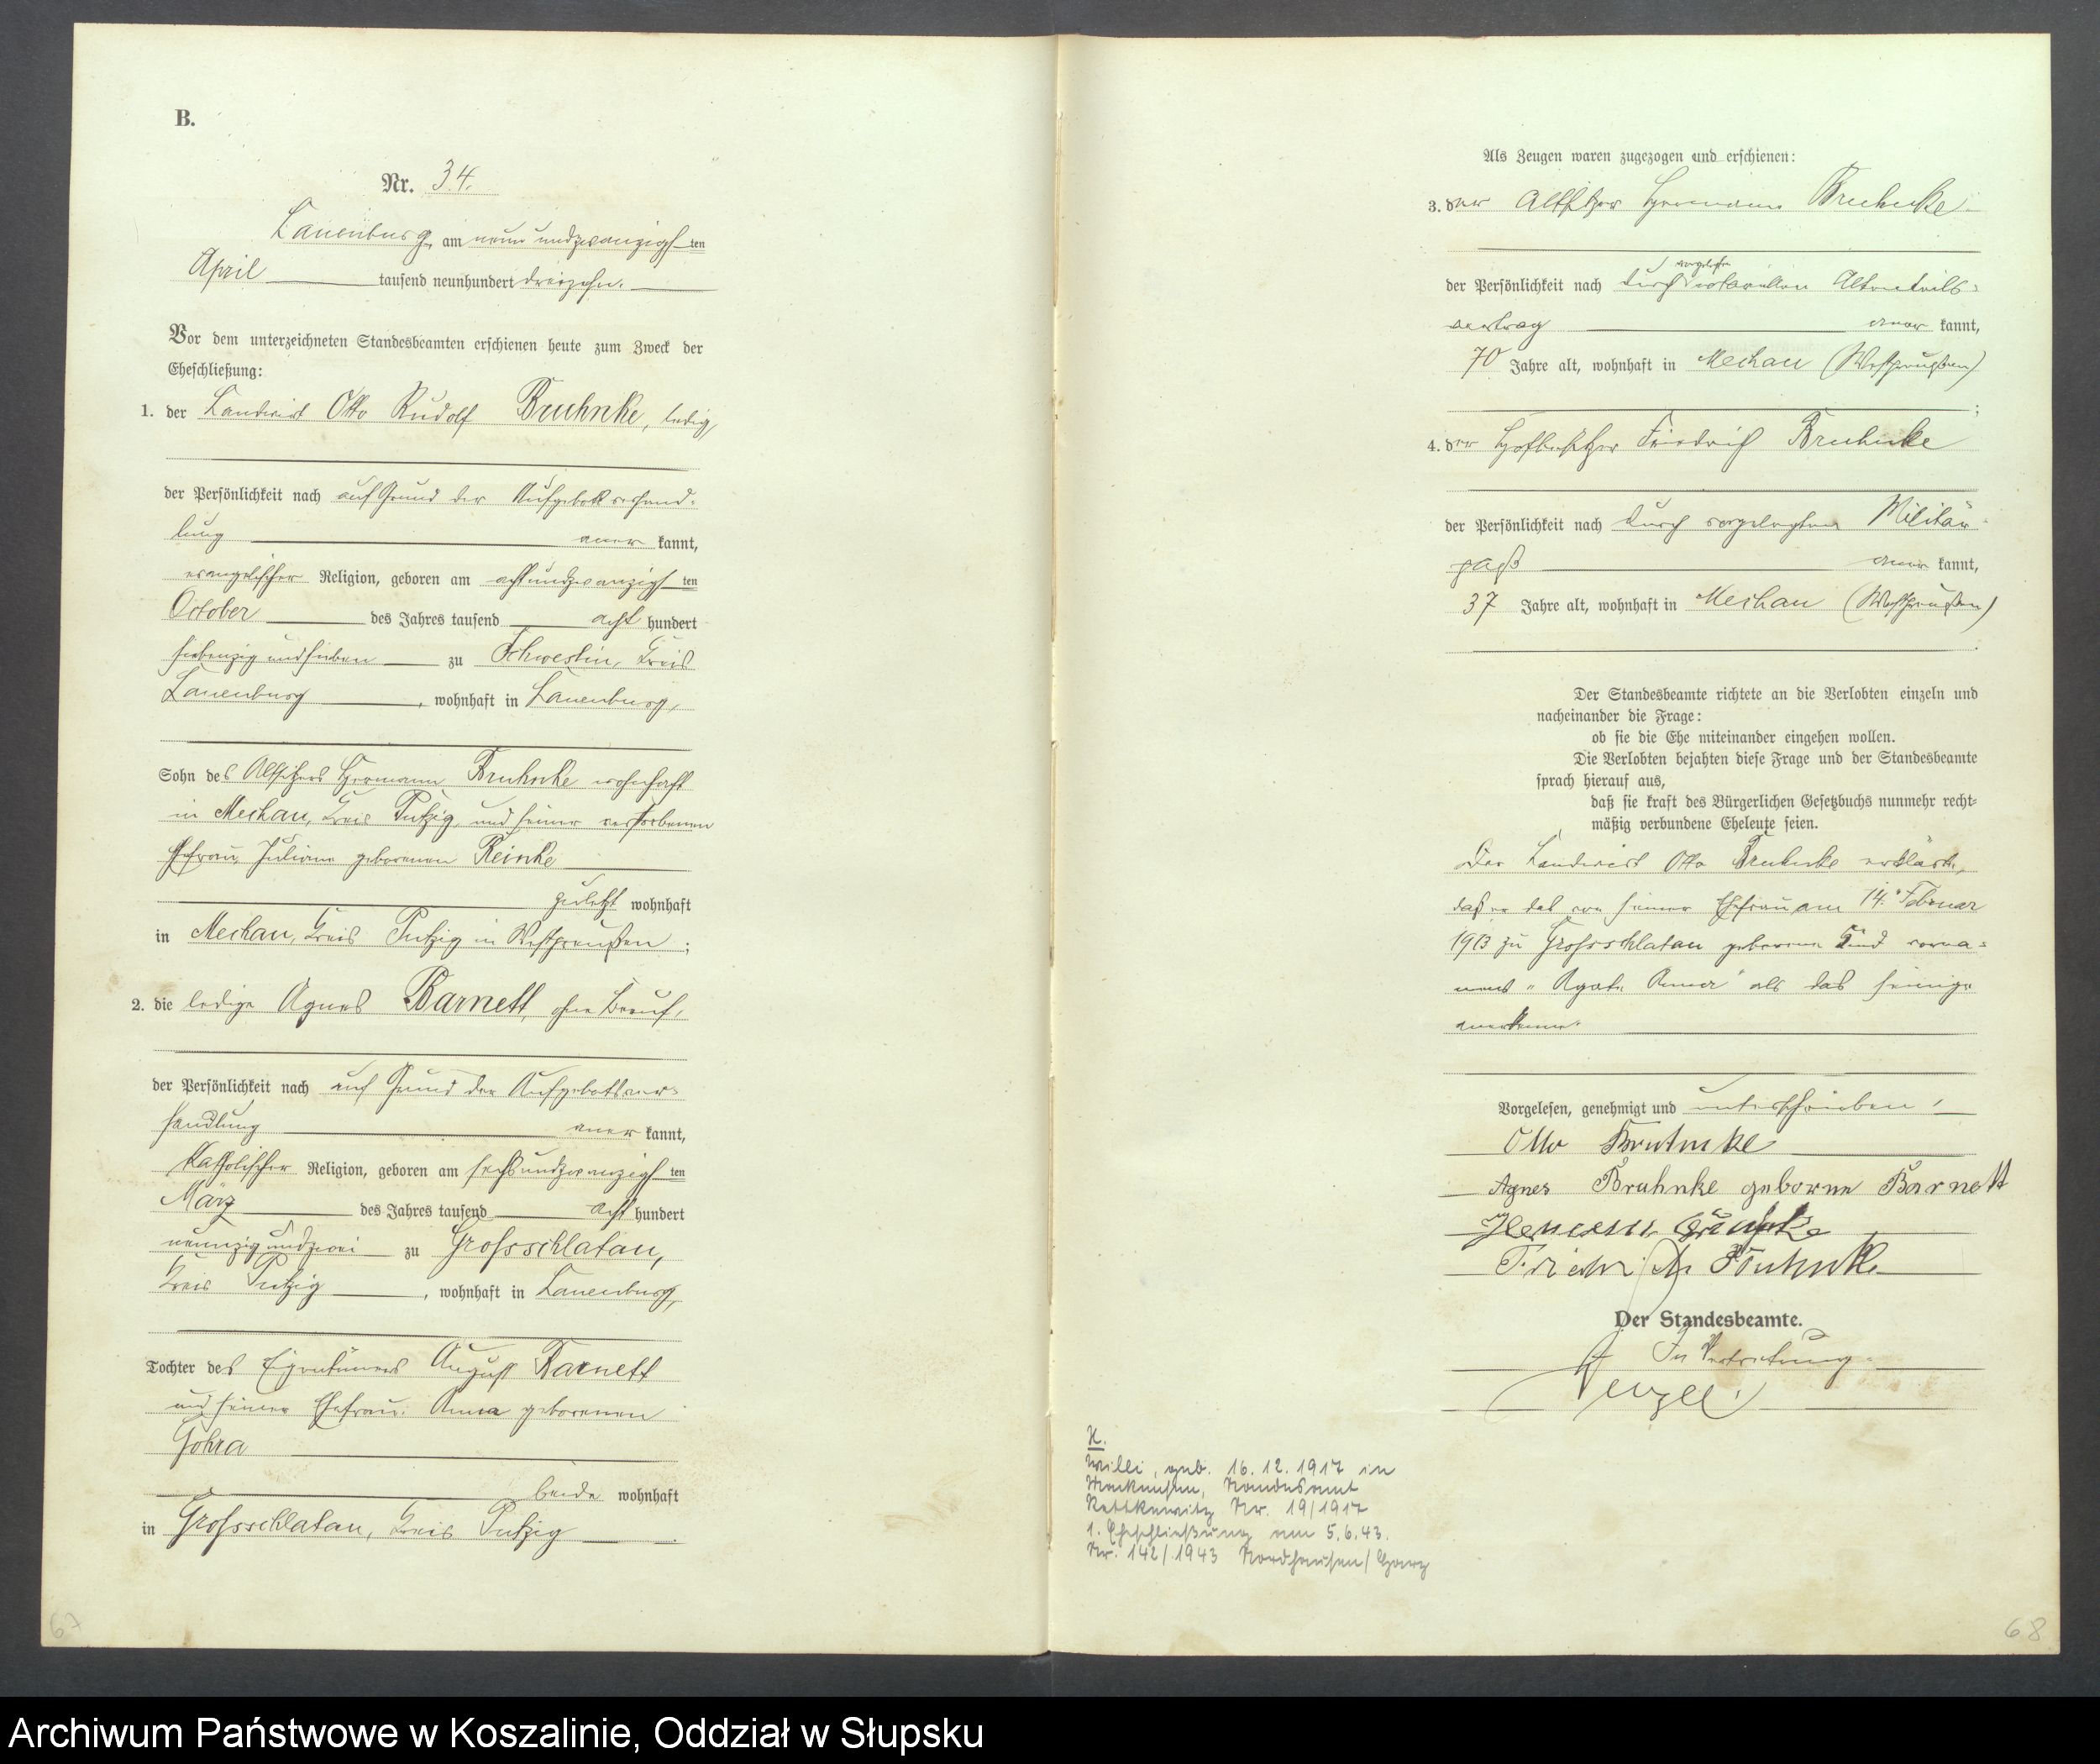 B.
Nr. 34.
Lauenburg, am neun und zwanzigsten
April tausend neunhundert dreizehn.
Vor dem unterzeichneten Standesbeamten erschienen heute zum Zweck der
Eheschließung:
1. der Landwirt Otto Rudolf Bruhnke, ledig,
der Persönlichkeit nach auf Grund der Aufgebotsverhand-
lung aner kannt,
evangelischer Religion, geboren am achtundzwanzigsten
October des Jahres tausend acht hundert
siebenzig und sieben zu Schweslin, Kreis
Lauenburg, wohnhaft in Lauenburg,
Sohn des Altsitzers Hermann Bruhnke wohnhaft
in Mechau, Kreis Putzig, und seiner verstorbenen
Ehefrau, Juliane geborenen Reinke
zuletzt wohnhaft
in Mechau, Kreis Putzig in Westpreußen;
2. die ledige Agnes Barnett, ohne Beruf,
der Persönlichkeit nach auf Grund der Aufgebotsver-
handlung aner kannt,
katholischer Religion, geboren am sechsundzwanzigsten
März des Jahres tausend acht hundert
neunzig und zwei zu Grossschlatau,
Kreis Putzig, wohnhaft in Lauenburg,
Tochter des Eigentümers August Barnett
und seiner Ehefrau Anna geborenen
Gohra
beide wohnhaft
in Grossschlatau, Kreis Putzig.
67
Als Zeugen waren zugezogen und erschienen:
3. der Altsitzer Hermann Bruhnke
der Persönlichkeit nach durch vorgelegten notariellen Altenteils-
vertrag aner kannt,
70 Jahre alt, wohnhaft in Mechau (Westpreußen)
;
4. der Hofbesitzer Friedrich Bruhnke
der Persönlichkeit nach durch vorgelegten Militär-
paß aner kannt,
37 Jahre alt, wohnhaft in Mechau (Westpreußen)
.
Der Standesbeamte richtete an die Verlobten einzeln und
nacheinander die Frage:
ob sie die Ehe miteinander eingehen wollen.
Die Verlobten bejahten diese Frage und der Standesbeamte
sprach hierauf aus,
daß sie kraft des Bürgerlichen Gesetzbuchs nunmehr recht-
mäßig verbundene Eheleute seien.
Der Landwirt Otto Bruhnke erklärte,
daß er das von seiner Ehefrau am 14. Februar
1913 zu Grossschlatau geborene Kind vorna-
mens "Agate Anna" als das seinige
anerkenne.
Vorgelesen, genehmigt und unterschrieben:
Otto Bruhnke
Agnes Bruhnke geborne Barnett
Hermann Bruhnke
Friedrich Bruhnke
Der Standesbeamte.
In Vertretung.
K.
Willi, geb. 16.12.1917 in
Standesamt
Rettkewitz Nr. 19/1917
1. Eheschließung am 5.6.43.
Nr. 142/1943 Nordhausen/Harz
68
Archiwum Państwowe w Koszalinie, Oddział w Słupsku